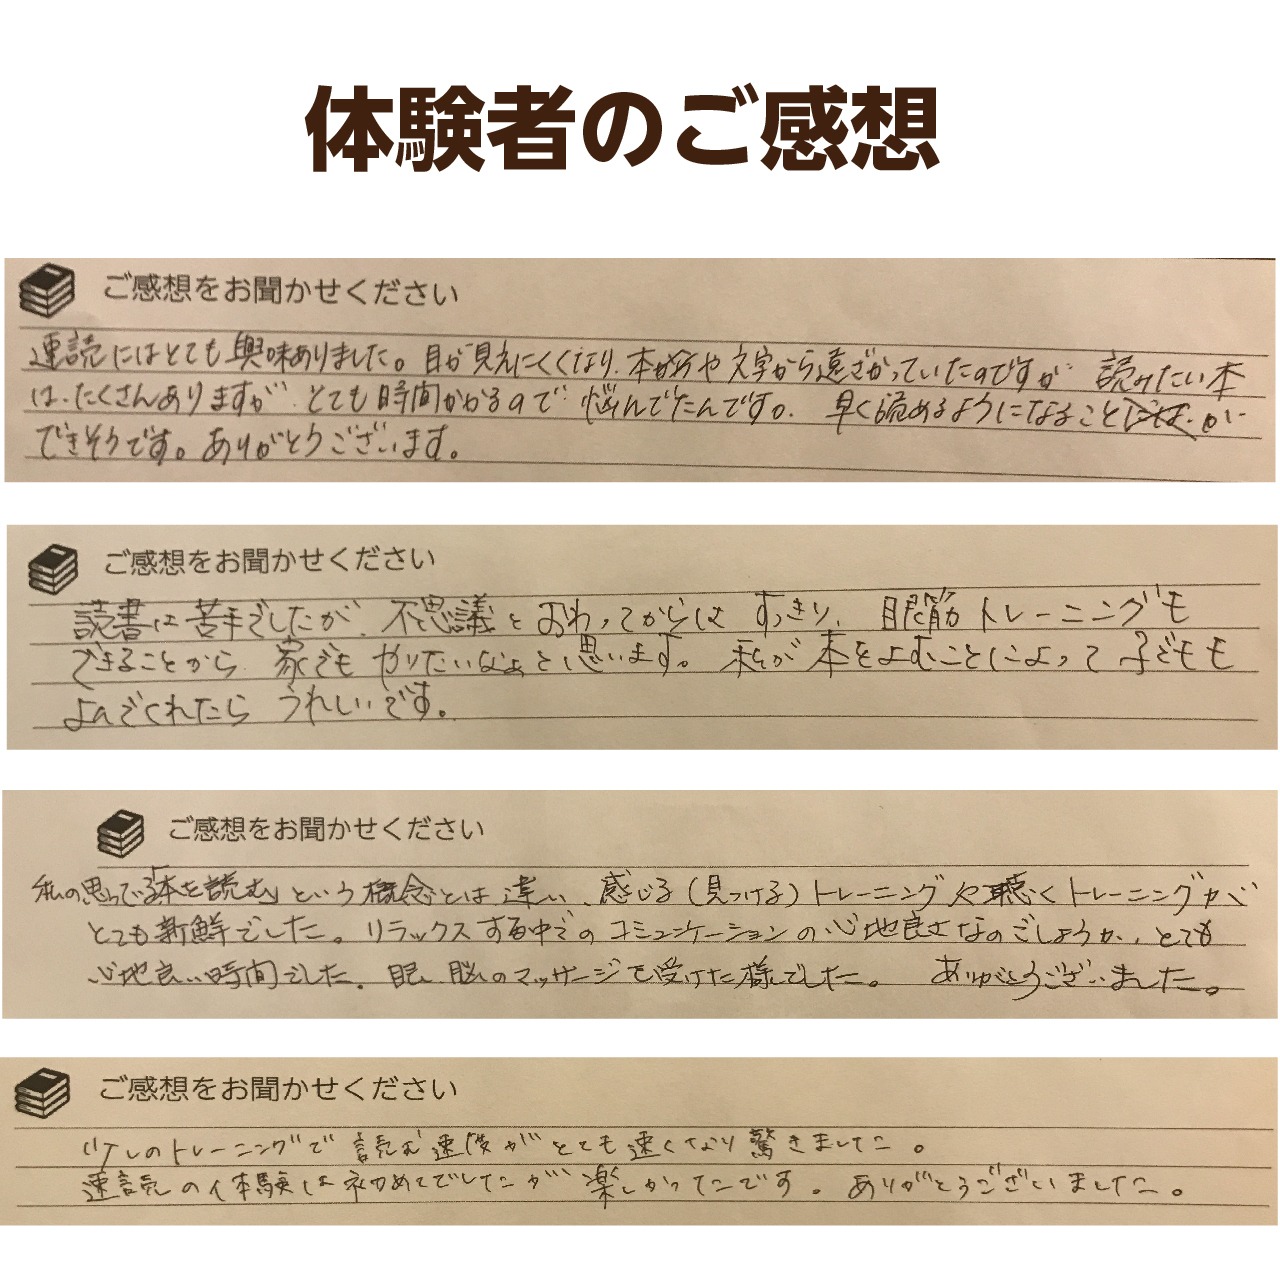 体験者のご感想
ご感想をお聞かせください
速読にはとても興味ありました。目が見えにくくなり、本や文字から遠ざかっていたのですが 読みたい本
は、たくさんありますが、とても時間かかるので 悩んでたんです。早く読めるようになること が
できそうです。ありがとうございます。
ご感想をお聞かせください
読書は苦手でしたが、不思議とおわってからは すっきり、眼筋トレーニングも
できることから 家でも やりたいなぁと思います。私が本をよむことによって 子どもも
よんでくれたら うれしいです。
ご感想をお聞かせください
私の思っている「本を読む」という概念とは違い、感じる(見つける)トレーニングや聴くトレーニングが
とても新鮮でした。リラックスする中でのコミュニケーションの心地良さなのでしょうか、とても
心地良い時間でした。眼、脳のマッサージを受けた様でした。 ありがとうございました。
ご感想をお聞かせください
少しのトレーニングで 読む速度がとても速くなり驚きました。
速読の体験は初めてでしたが 楽しかったです。ありがとうございました。